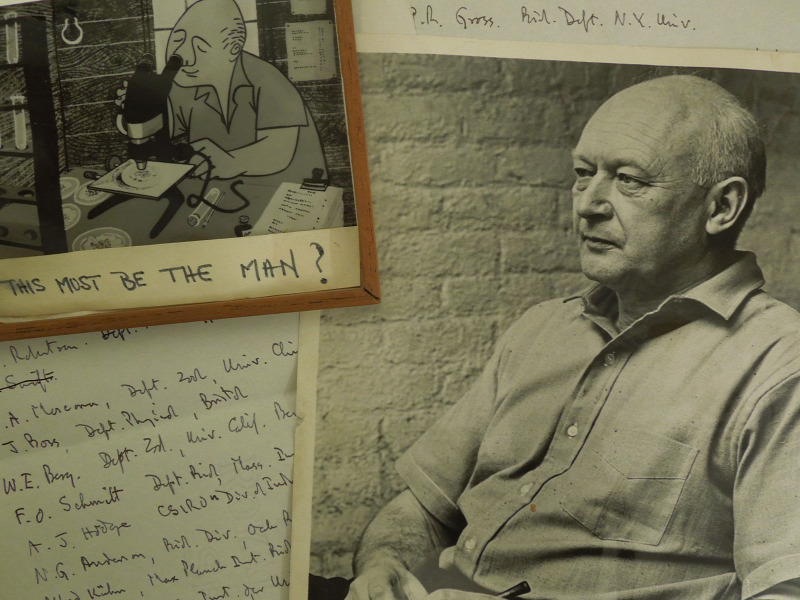 P.R. Gross. Biol. Dept. N.Y. Univ.
THIS MOST BE THE MAN?
. Robertson. Dept.
Swift.
. A. Dept. Zool, Univ.
J. Boss, Dept. Physiol, Bristol
W.E. Berg. Dept. Zool, Univ. Calif. Ber
F.O. Schmitt Dept. Biol, Mass. In
A. J. Hodge CSIRO Div. of Ind
N.G. Anderson, Biol. Div. Oak R
Alfred Kühn, Max Planck Inst. Biol
Inst. der Un